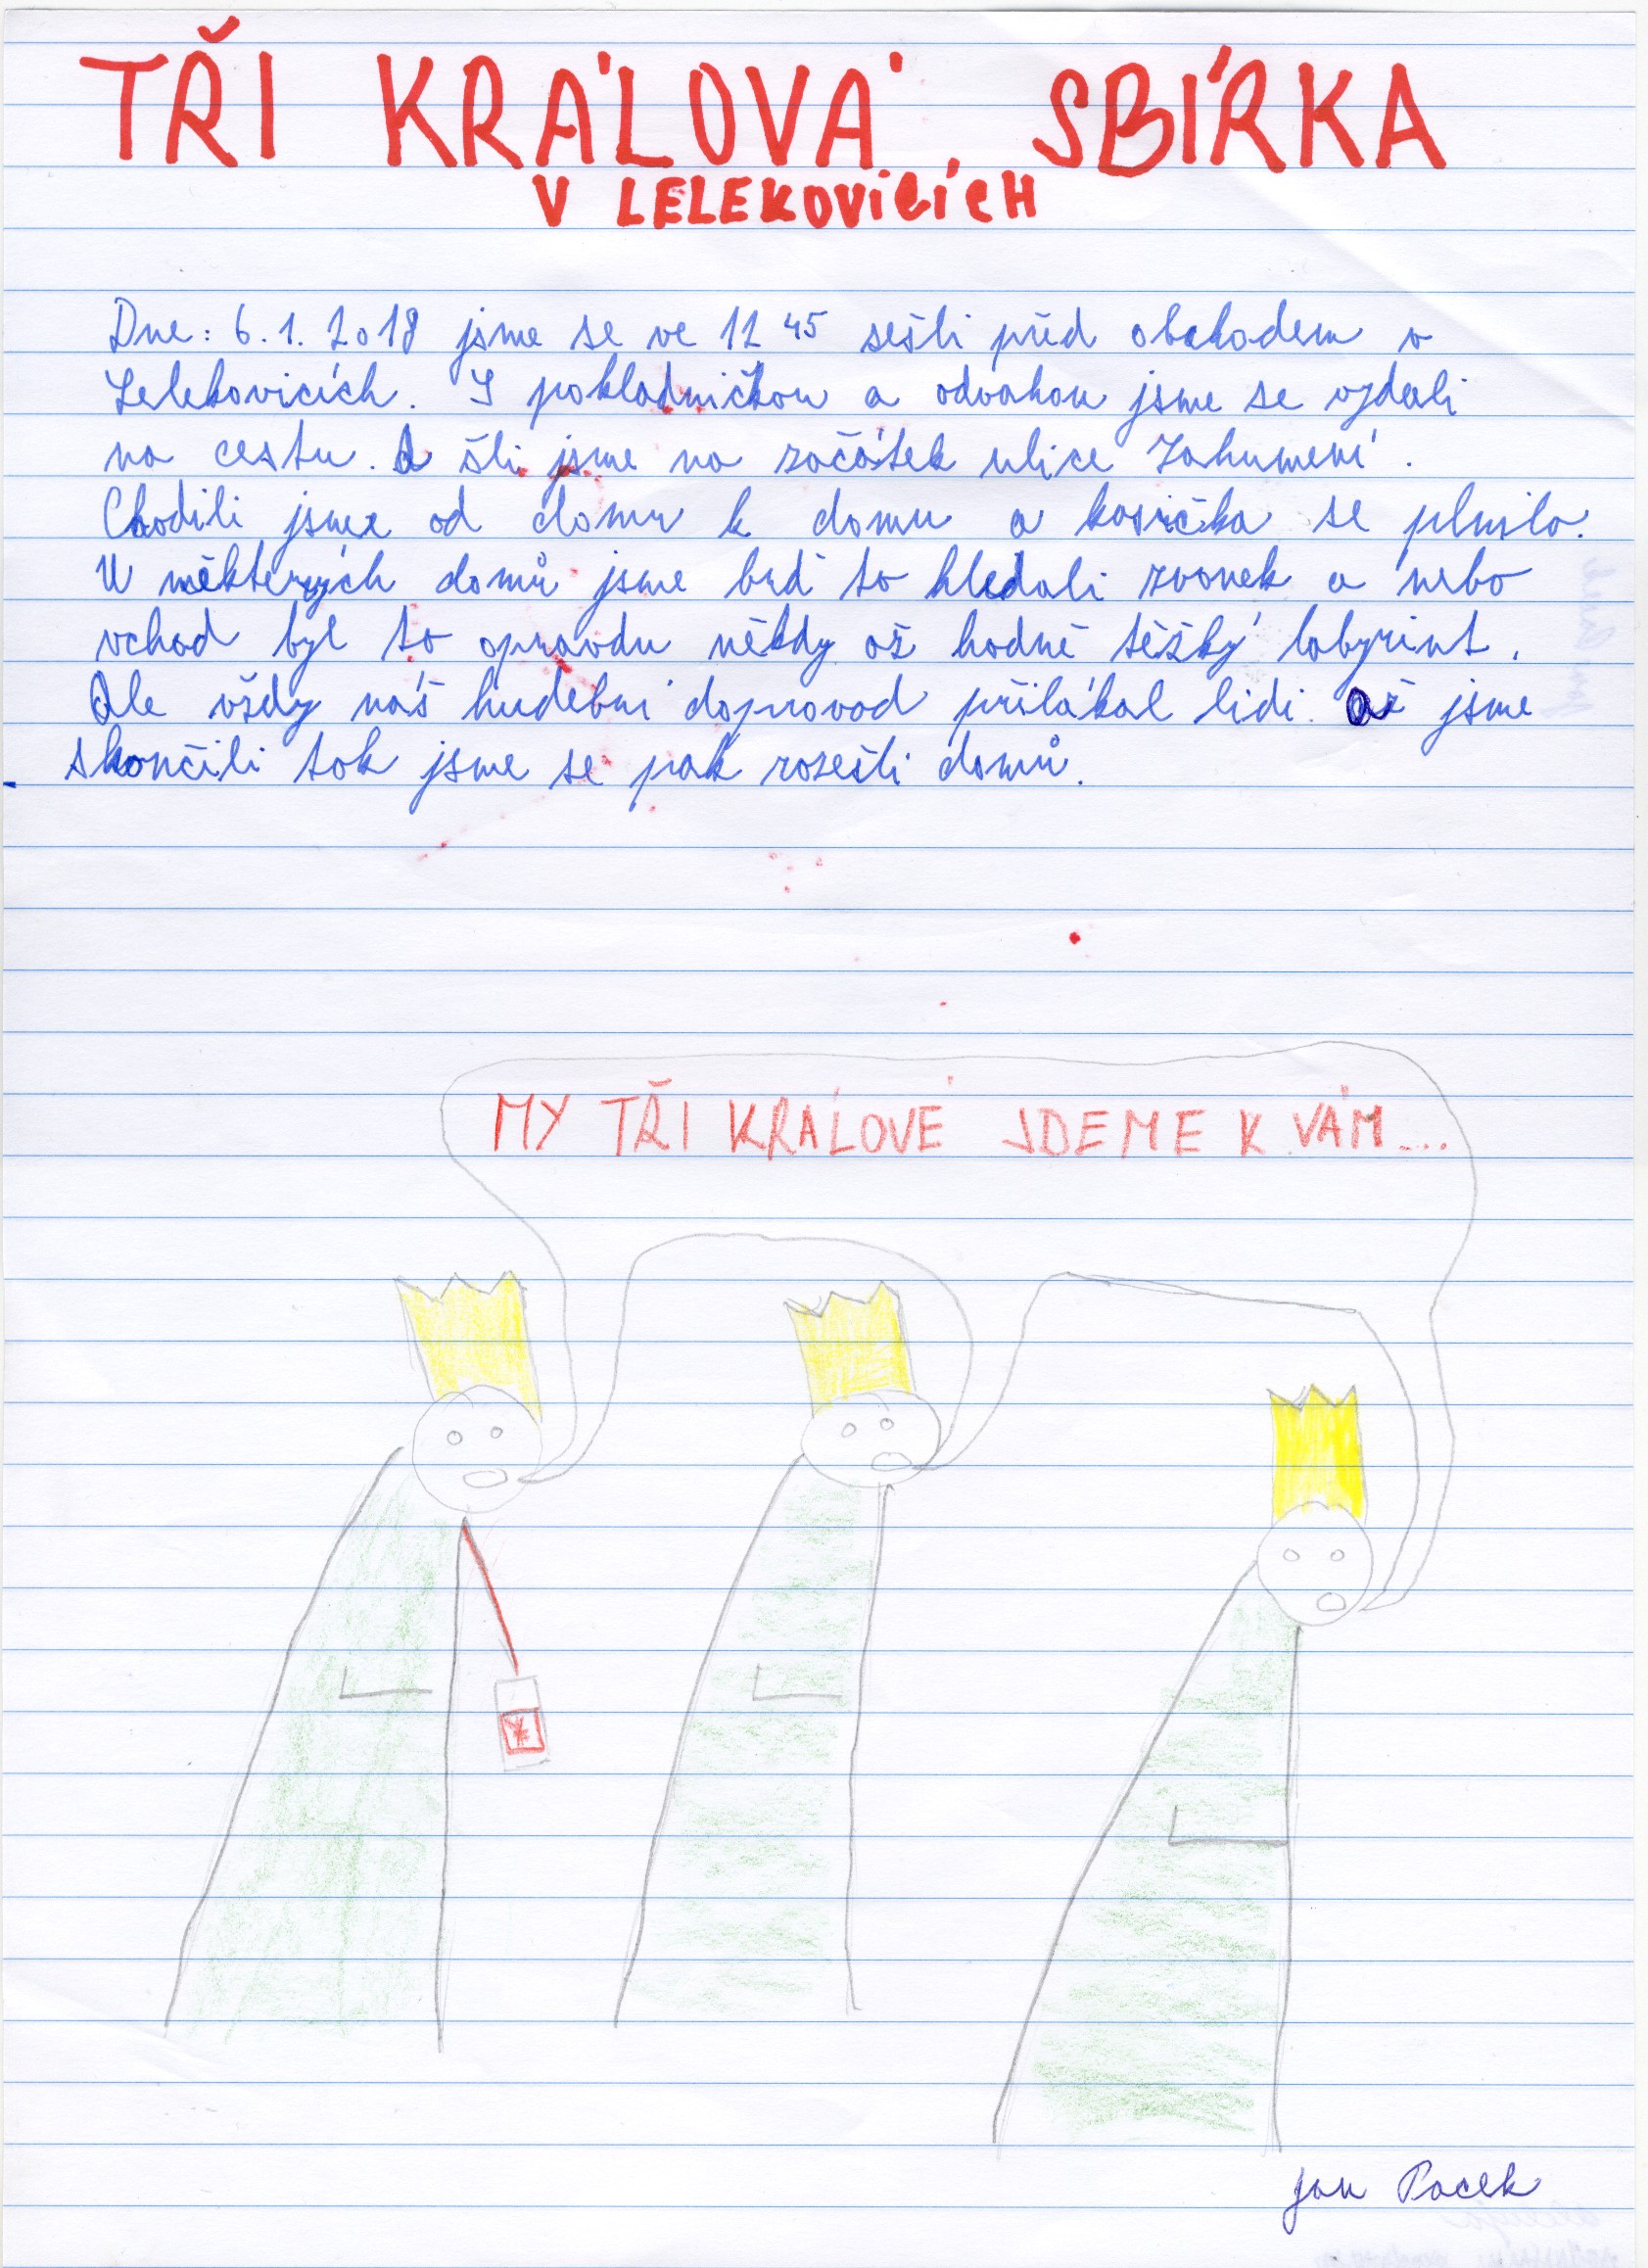 TŘI KRÁLOVÁ SBÍRKA
V LELEKOVICÍCH
Dne: 6.1.2018 jsme se ve 12 45 sešli před obchodem v
Lelekovicích. S pokladničkou a odvahou jsme se vydali
na cestu. A šli jsme na začátek ulice Zahumení.
Chodili jsme od domu k domu a kasička se plnila.
U některých domů jsme buď to hledali zvonek a nebo
vchod byl to opravdu někdy až hodně těžký labyrint.
Ale vždy náš hudební doprovod přilákal lidi. Až jsme
skončili tak jsme se pak rozešli domů.
MY TŘI KRÁLOVÉ JDEME K VÁM...
Jan Pacek